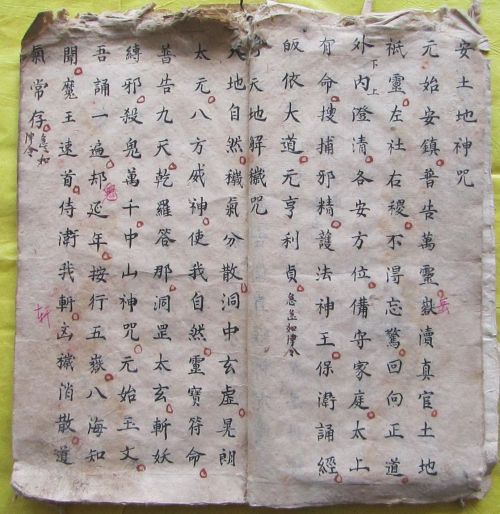 安土地神咒
元始安鎮普告萬靈嶽瀆真官土地
岳
祇靈左社右稷不得忘驚回向正道
外內澄清各安方位備守家庭太上
下上
有命搜捕邪精護法神王保衛誦經
皈依大道元亨利貞急〻如律令
天地解穢咒
天地自然穢氣分散洞中玄虛晃朗
太元八方威神使我自然靈寶符命
普告九天乾羅答那洞罡太玄斬妖
縛邪殺鬼萬千中山神咒元始玉文
吾誦一遍却延年按行五嶽八海知
鬼
聞魔王速首侍衛我軒凶穢消散道
軒
氣常存急〻如律令